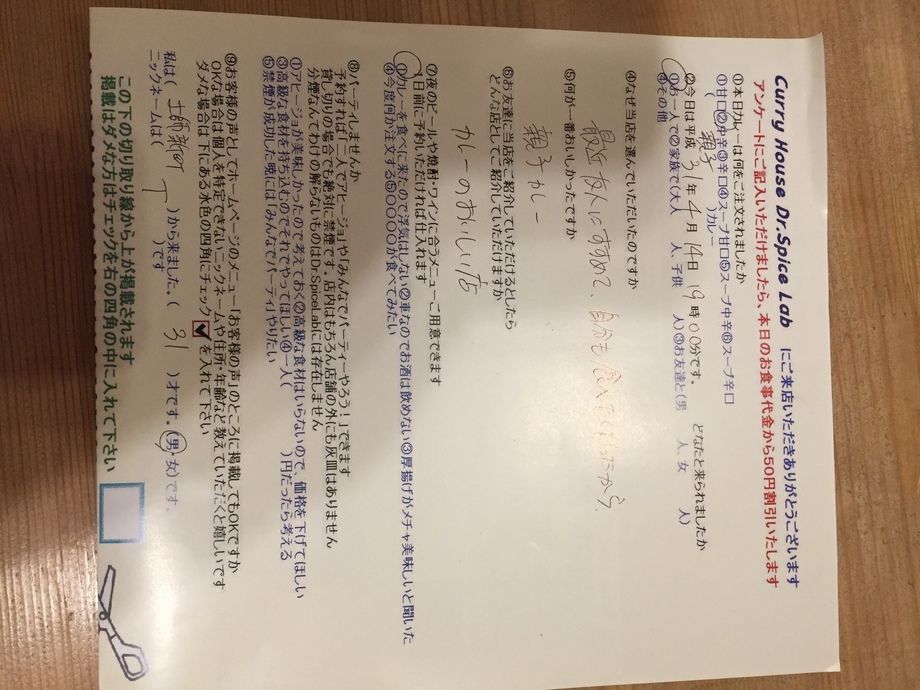 Curry House Dr.Spice Lab にご来店いただきありがとうございます
アンケートにご記入いただけましたら、本日のお食事代金から50円割引いたします
①本日カレーは何をご注文されましたか
①甘口②中辛③辛口④スープ甘口⑤スープ中辛⑥スープ辛口
( 親子 )カレー
②今日は平成 31 年 4 月 14 日 19 時 00 分です。 どなたと来られましたか
①お一人で②家族で(大人 人、子供 人)③お友達と(男 人、女 人)
④その他
④なぜ当店を選んでいただいたのですか
最近友人にすすめて、自分も
⑤何が一番おいしかったですか
親子カレー
⑥お友達に当店をご紹介していただけるとしたら
どんな店としてご紹介していただけますか
カレーのおいしい店
⑦夜のビールや焼酎・ワインに合うメニューご用意できます
1日前に予約いただければ仕入れます
①カレーを食べに来たので浮気はしない②車なのでお酒は飲めない③厚揚げがメチャ美味しいと聞いた
④今度何か注文する⑤〇〇〇〇が食べてみたい
⑧パーティしませんか
予約すれば「二人でアヒージョ」や「みんなでパーティーやろう!」できます
貸し切りの場合でも絶対に禁煙です。店内はもちろん店舗の外にも灰皿はありません
分煙なんてわけの解らないものはDr.SpiceLabには存在しません
①アヒージョが美味しかったので考えておく②高級な食材はいらないので、価格を下げてほしい
③高級な食材を持ち込むのでそれでやってほしい④一人( )円だったら考える
⑤禁煙が成功した暁には「みんなでパーティ」やりたい
⑨お客様の声としてホームページのメニュー「お客様の声」のところに掲載してもOKですか
OKな場合は個人を特定できないニックネームや住所・年齢など教えていただくと嬉しいです
ダメな場合は下にある水色の四角にチェック✓を入れて下さい
私は( )から来ました。( 31 )才です。(男・女)です。
ニックネームは( T )です
この下の切り取り線から上が掲載されます
掲載はダメな方はチェックを右の四角の中に入れて下さい